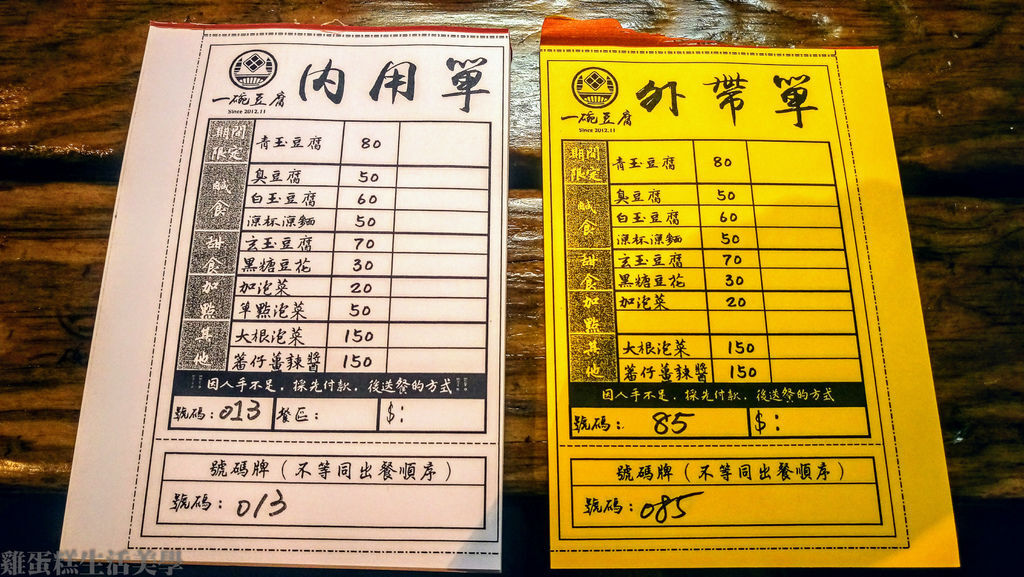 內用單
一碗豆腐
Since 2012.11
期間限定
青玉豆腐 80
鹹食
臭豆腐 50
白玉豆腐 60
涼杯涼麵 50
甜食
玄玉豆腐 70
黑糖豆花 30
加點
加泡菜 20
單點泡菜 50
其他
大根泡菜 150
蕃仔薑辣醬 150
因人手不足，採先付款，後送餐的方式
號碼：013 餐區： $：
號碼牌（不等同出餐順序）
號碼：013
外帶單
一碗豆腐
Since 2012.11
期間限定
青玉豆腐 80
鹹食
臭豆腐 50
白玉豆腐 60
涼杯涼麵 50
甜食
玄玉豆腐 70
黑糖豆花 30
加點
加泡菜 20
其他
大根泡菜 150
蕃仔薑辣醬 150
因人手不足，採先付款，後送餐的方式
號碼：85 $：
號碼牌（不等同出餐順序）
號碼：085
雞蛋糕生活美學